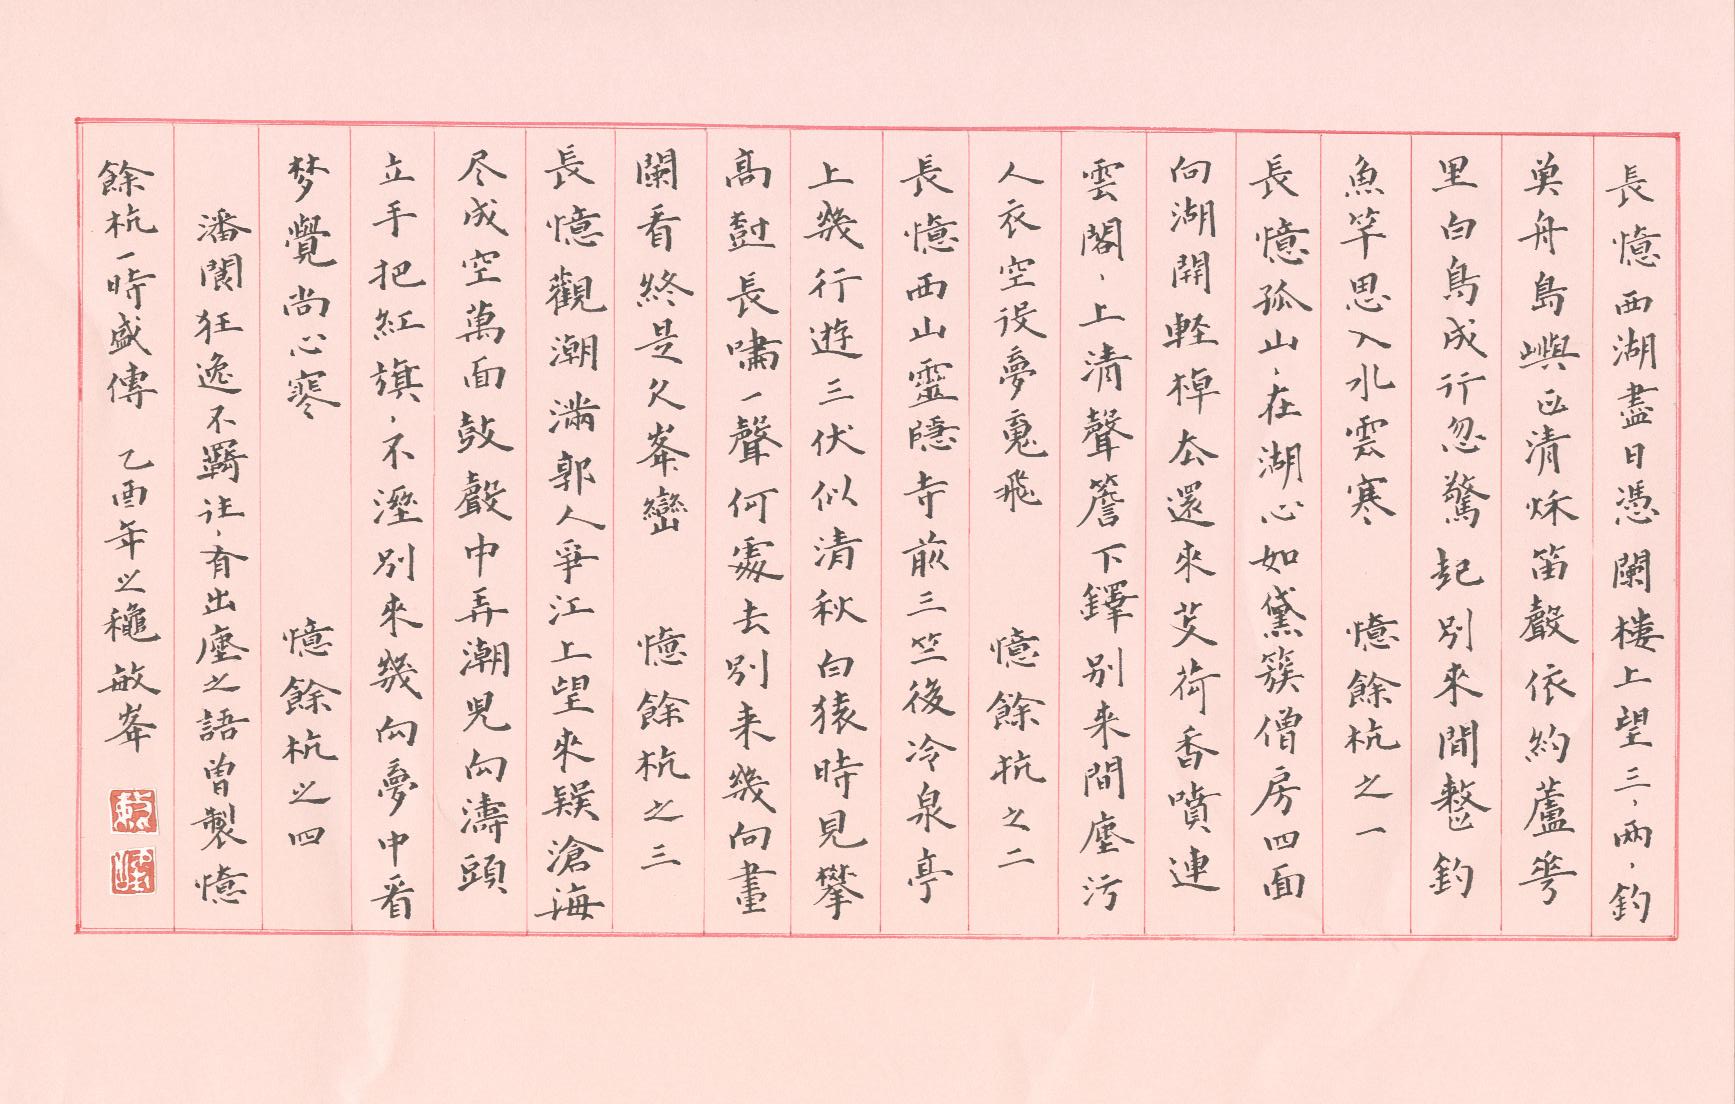 長憶西湖盡日憑闌樓上望三々兩々釣
奠舟島嶼正清秌笛聲依約蘆雩
里白鳥成行忽驚起別來閒整釣
魚竿思入水雲寒　憶餘杭之一
長憶孤山々在湖心如黛簇僧房四面
向湖開軽棹去還來芰荷香噴連
雲閣々上清聲簷下鐸别来間塵污
人衣空役夢䰟飛　憶餘杭之二
長憶西山靈隱寺前三竺後冷泉亭
上幾行遊三伏似清秋白猿時見攀
高樹長嘯一聲何處去別来幾向畫
闌看終是欠峯巒　憶餘杭之三
長憶觀潮滿郭人爭江上望來疑滄海
尽成空萬面鼓聲中弄潮児向濤頭
立手把紅旗々不溼別來幾向夢中看
梦覺尚心寒　憶餘杭之四
潘閬狂逸不羈往々有出塵之語曽製憶
餘杭一時盛傳　乙酉年之龝敏峯